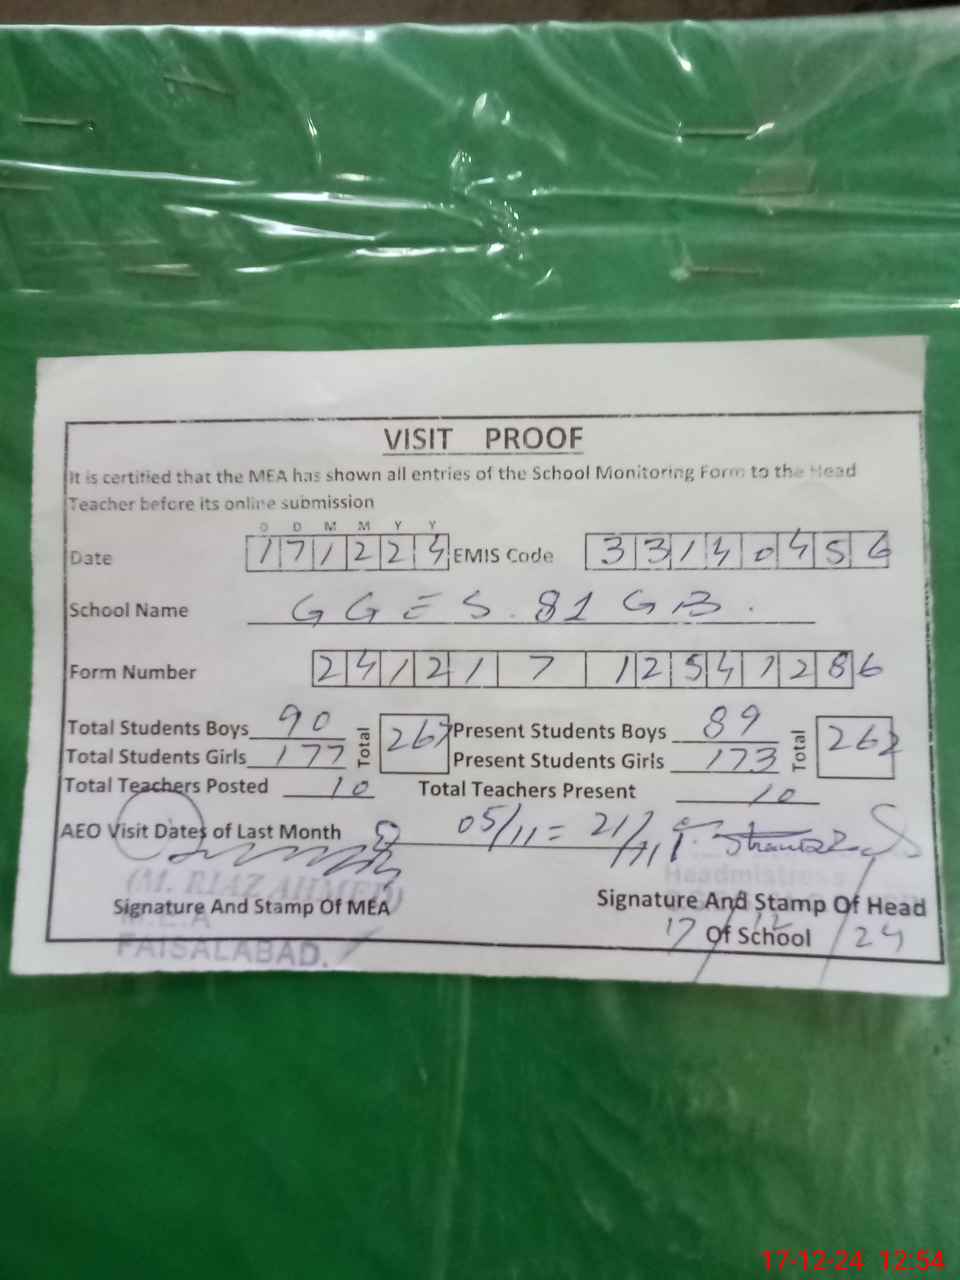 VISIT PROOF
It is certified that the MEA has shown all entries of the School Monitoring Form to the Head
Teacher before its online submission
D D M M Y Y
Date 171224 EMIS Code 33140456
School Name GGES. 81 GB.
Form Number 24121 7 12541286
Total Students Boys 90 Total 267 Present Students Boys 89 Total 262
Total Students Girls 177 Present Students Girls 173
Total Teachers Posted 10 Total Teachers Present 10
AEO Visit Dates of Last Month 05/11 = 21/11
(M. RIAZ AHMED) Headmistress
Signature And Stamp Of MEA Signature And Stamp Of Head
M.E.A
FAISALABAD. 17/12/24 Of School
17-12-24 12:54